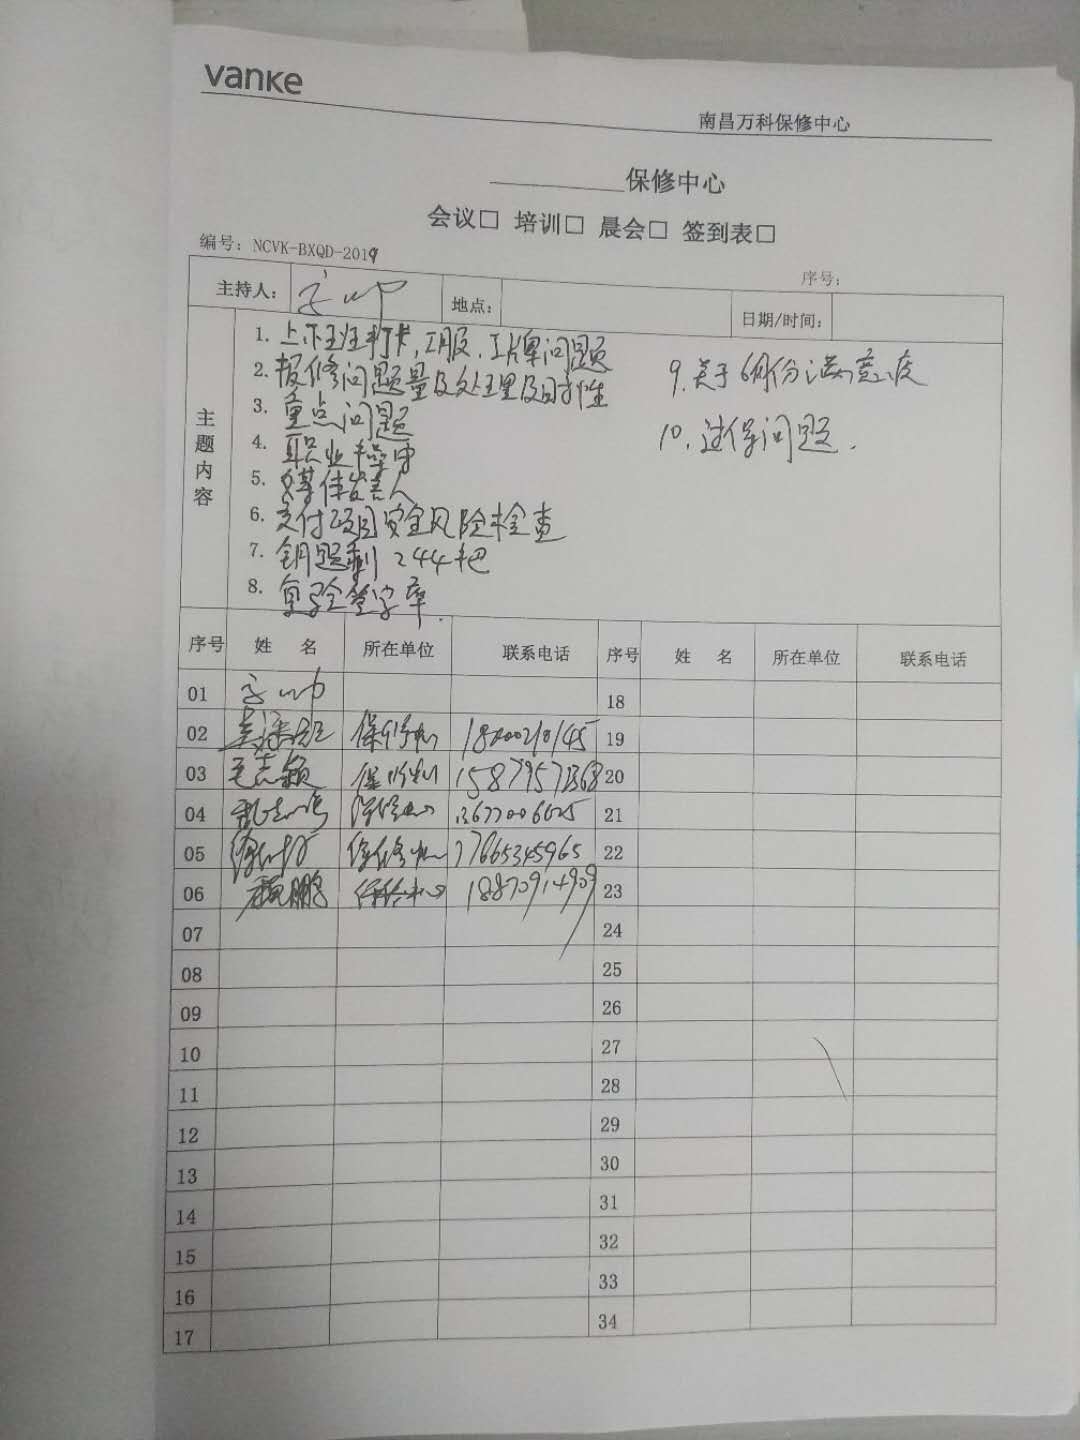 vanke
南昌万科保修中心
保修中心
会议□ 培训□ 晨会□ 签到表□
编号：NCVK-BXQD-2019
序号：
主持人：
地点：
日期/时间：
主题内容
1. 上下班打卡，工服，工牌问题
2. 报修问题量及处理及时性
3. 重点问题
4. 职业操守
5. 媒体发言人
6. 交付项目安全风险检查
7. 钥匙剩244把
8. 复验签字率.
9. 关于6月份满意度
10. 过保问题.
序号 姓名 所在单位 联系电话 序号 姓名 所在单位 联系电话
01 18
02 保修中心 19
03 保修中心 15879571368 20
04 保修中心 13677006625 21
05 保修中心 177665345965 22
06 鹏 保修中心 18870914909 23
07 24
08 25
09 26
10 27
11 28
12 29
13 30
14 31
15 32
16 33
17 34